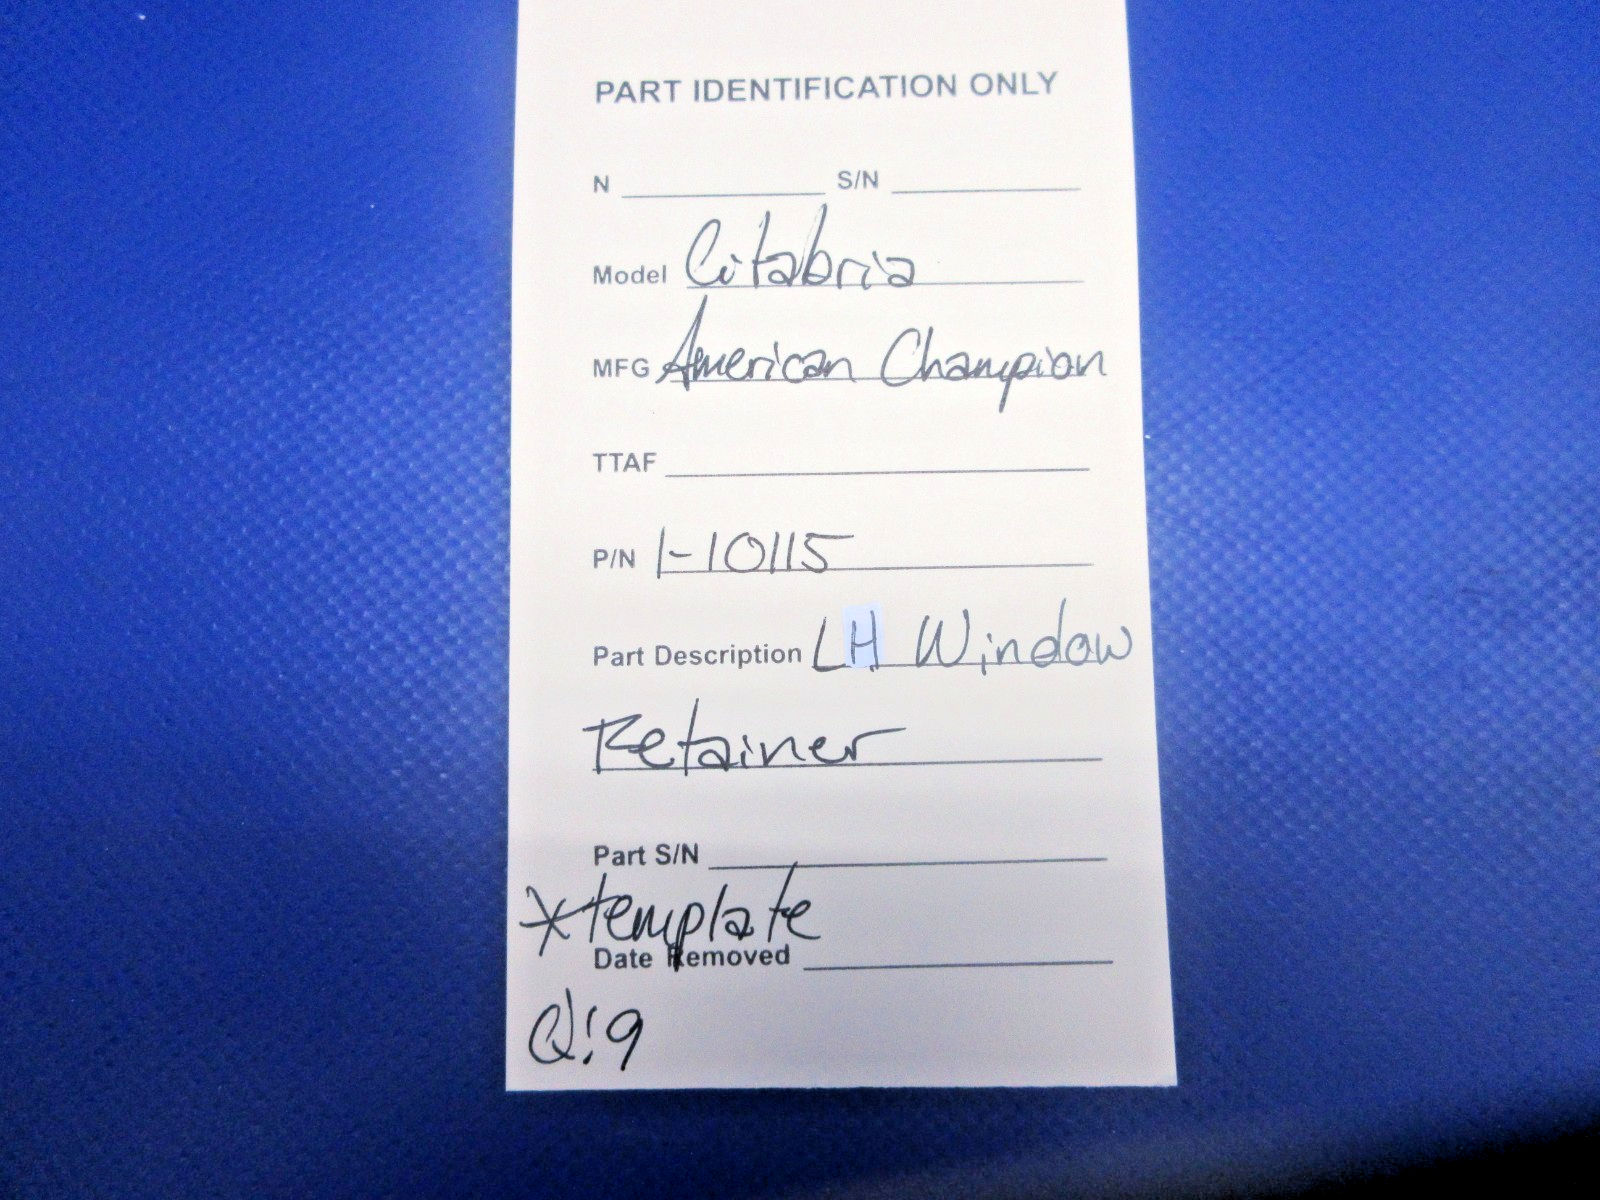 PART IDENTIFICATION ONLY
N S/N
Model Citabria
MFG American Champion
TTAF
P/N 1-10115
Part Description LH Window
Retainer
Part S/N
*template
Date Removed
Q:9